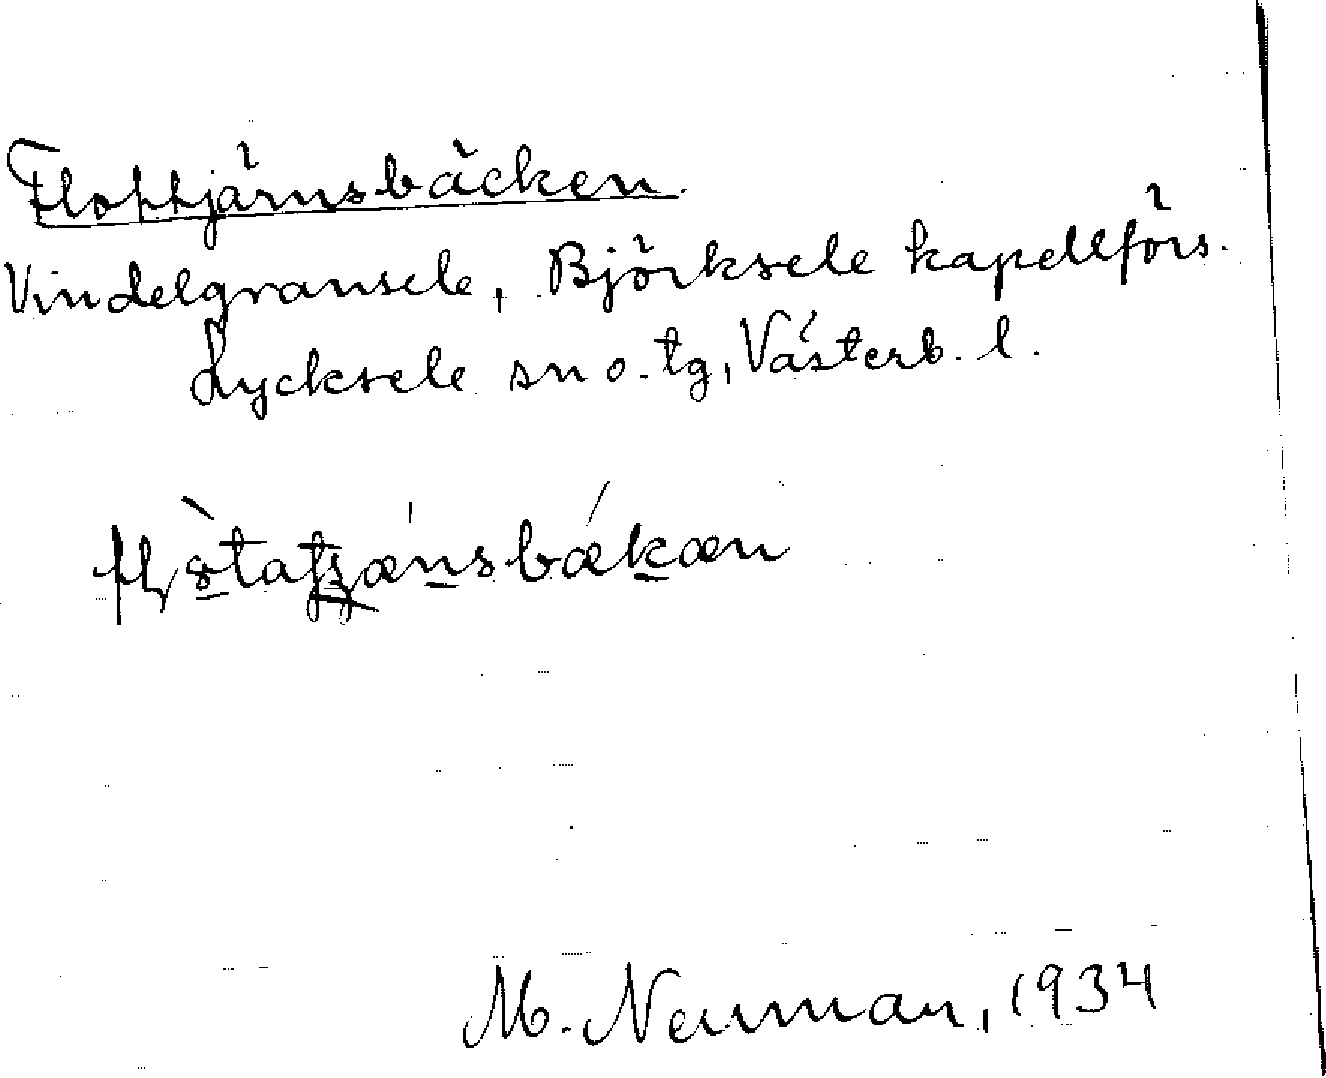 Flottjärnsbäcken.
Vindelgransele, Björksele kapellförs.
Lycksele sn o. tg, Västerb. l.
M. Neuman, 1934